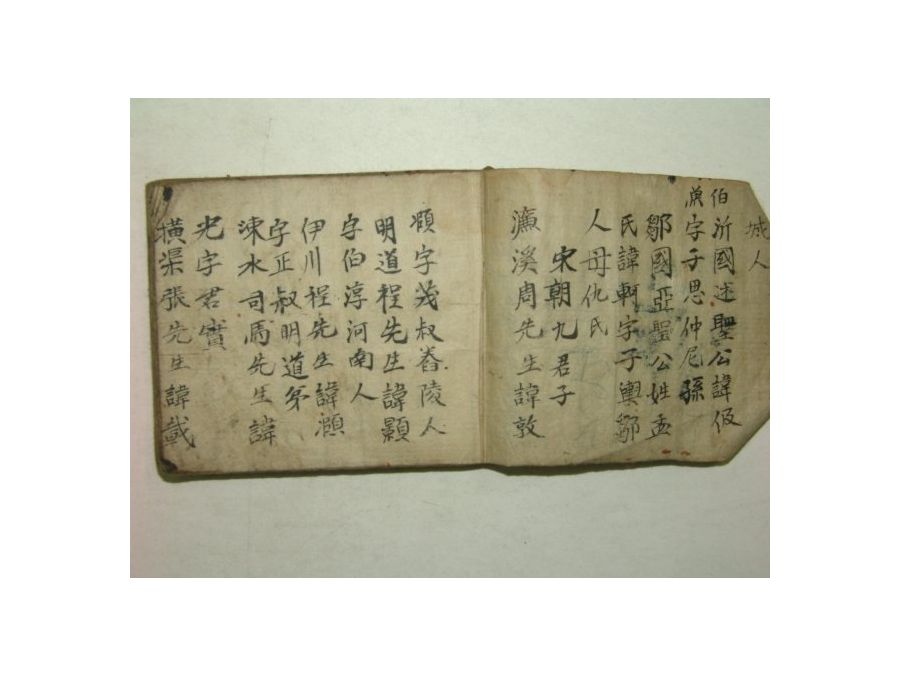 城人
伯沂國述聖公諱伋
字子思仲尼孫
鄒國亞聖公姓孟
氏諱軻字子輿鄒
人母仇氏
宋朝九君子
濂溪周先生諱敦
頤字茂叔舂陵人
明道程先生諱顥
字伯淳河南人
伊川程先生諱頤
字正叔明道弟
涑水司馬先生諱
光字君實
橫渠張先生諱載